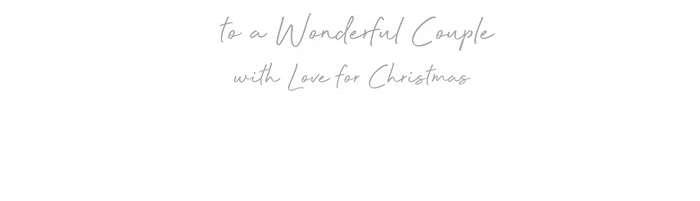 to a Wonderful Couple
with Love for Christmas